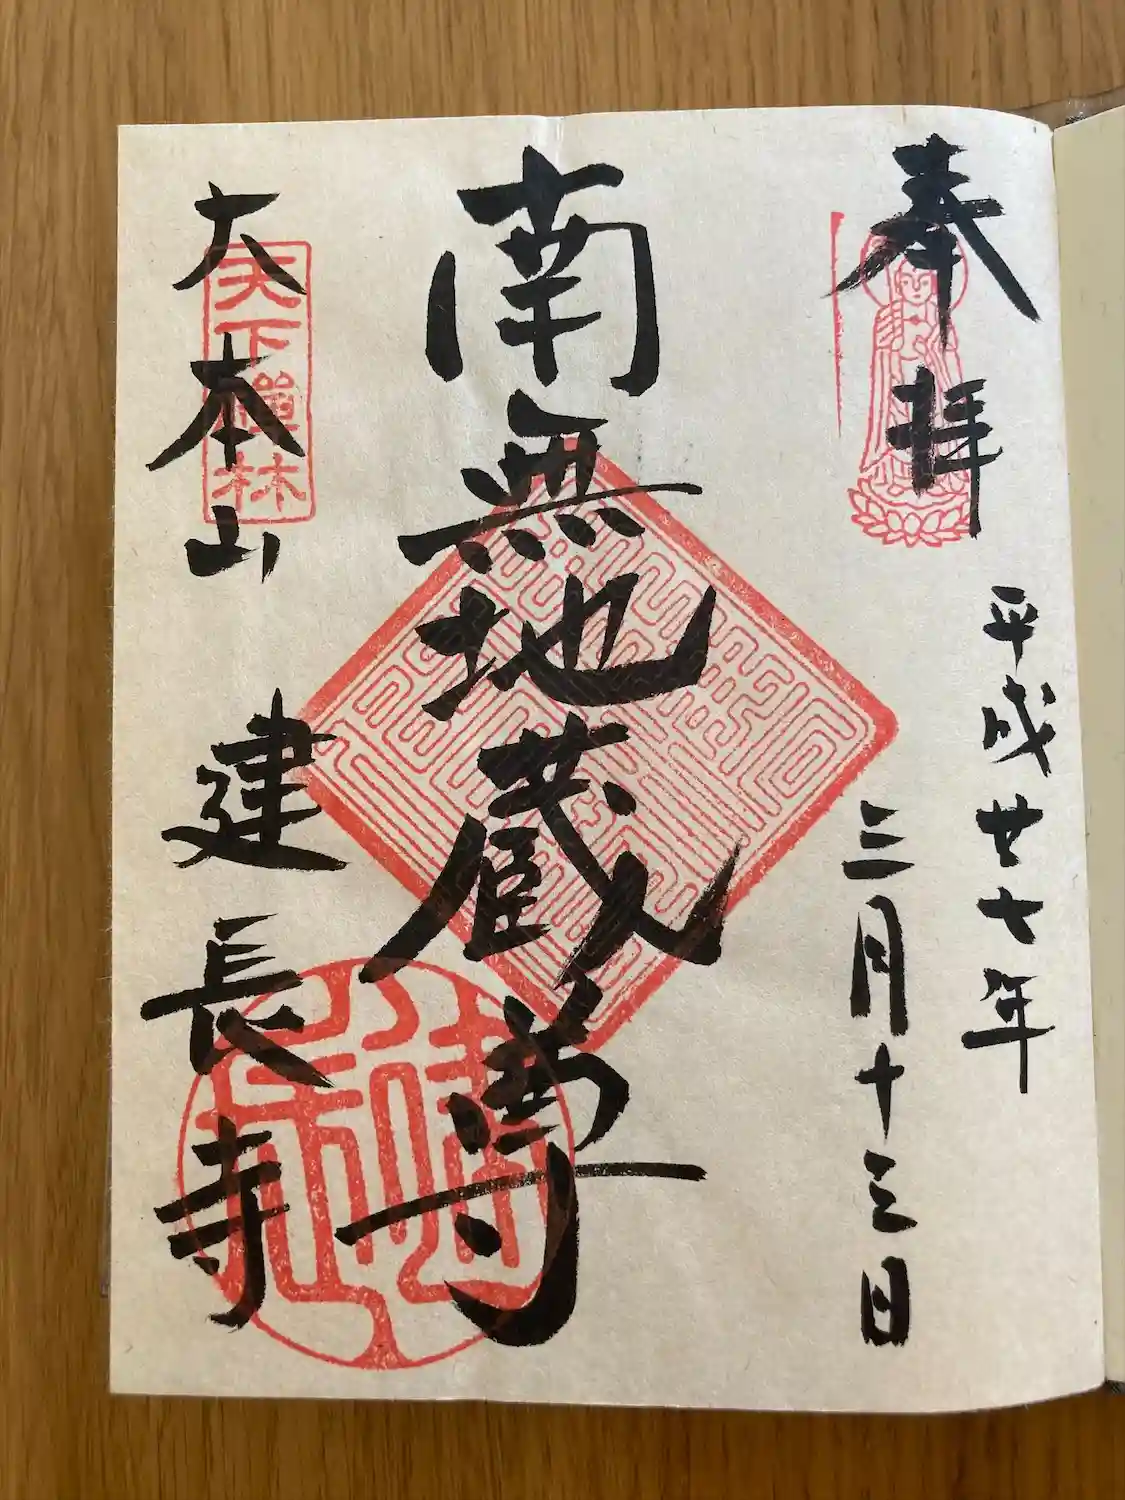 奉拝
平成廿七年
三月十三日
南無地蔵尊
大本山
建長寺
天下禅林